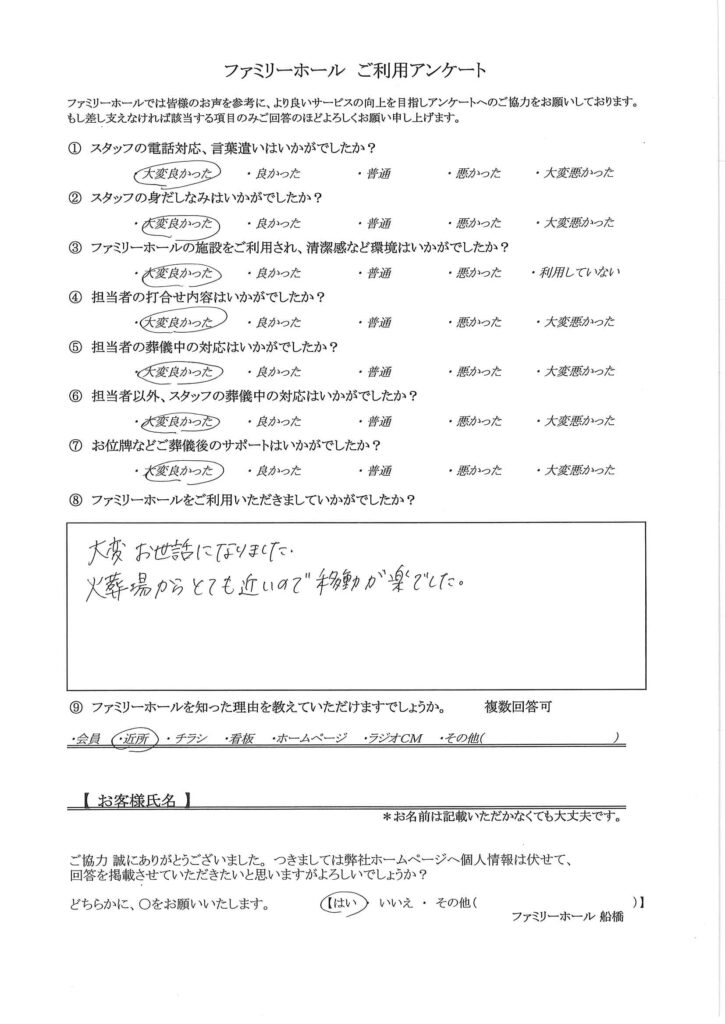 ファミリーホール ご利用アンケート
ファミリーホールでは皆様のお声を参考に、より良いサービスの向上を目指しアンケートへのご協力をお願いしております。
もし差し支えなければ該当する項目のみご回答のほどよろしくお願い申し上げます。
① スタッフの電話対応、言葉遣いはいかがでしたか？
・大変良かった ・良かった ・普通 ・悪かった ・大変悪かった
② スタッフの身だしなみはいかがでしたか？
・大変良かった ・良かった ・普通 ・悪かった ・大変悪かった
③ ファミリーホールの施設をご利用され、清潔感など環境はいかがでしたか？
・大変良かった ・良かった ・普通 ・悪かった ・利用していない
④ 担当者の打合せ内容はいかがでしたか？
・大変良かった ・良かった ・普通 ・悪かった ・大変悪かった
⑤ 担当者の葬儀中の対応はいかがでしたか？
・大変良かった ・良かった ・普通 ・悪かった ・大変悪かった
⑥ 担当者以外、スタッフの葬儀中の対応はいかがでしたか？
・大変良かった ・良かった ・普通 ・悪かった ・大変悪かった
⑦ お位牌などご葬儀後のサポートはいかがでしたか？
・大変良かった ・良かった ・普通 ・悪かった ・大変悪かった
⑧ ファミリーホールをご利用いただきましていかがでしたか？
大変お世話になりました.
火葬場からとても近いので移動が楽でした。
⑨ ファミリーホールを知った理由を教えていただけますでしょうか。 複数回答可
・会員 ・近所 ・チラシ ・看板 ・ホームページ ・ラジオCM ・その他( )
【 お客様氏名 】
＊お名前は記載いただかなくても大丈夫です。
ご協力 誠にありがとうございました。つきましては弊社ホームページへ個人情報は伏せて、
回答を掲載させていただきたいと思いますがよろしいでしょうか？
どちらかに、○をお願いいたします。 【はい ・ いいえ ・ その他( )】
ファミリーホール 船橋